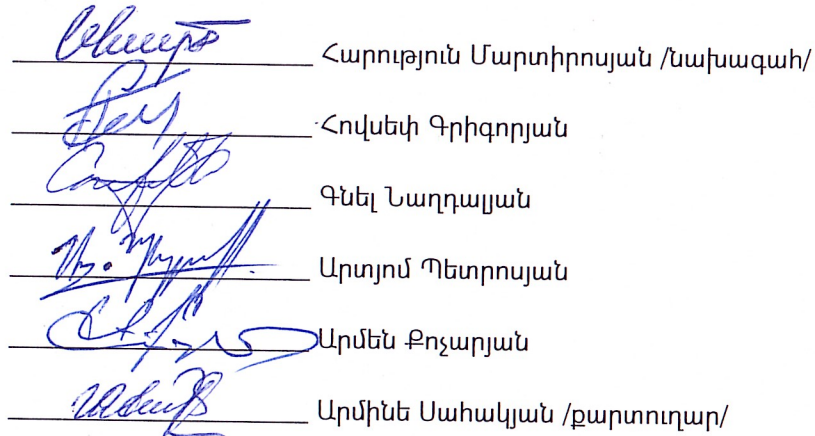 Հարություն Մարտիրոսյան /նախագահ/
Հովսեփ Գրիգորյան
Գնել Նաղդալյան
Արտյոմ Պետրոսյան
Արմեն Քոչարյան
Արմինե Սահակյան /քարտուղար/